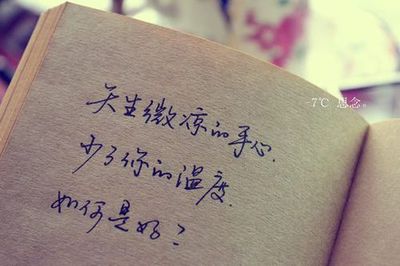 天生微凉的手心.
少了你的温度.
如何是好?
7℃ 思念。